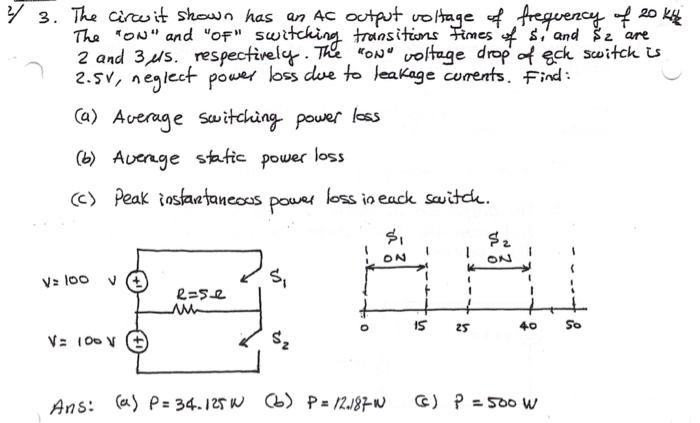 2/ 3. The circuit shown has an AC output voltage of frequency of 20 kHz
The "ON" and "OF" switching transitions times of S1 and S2 are
2 and 3 μs. respectively. The "ON" voltage drop of ech switch is
2.5V, neglect power loss due to leakage currents. Find:
(a) Average switching power loss
(b) Average static power loss
(c) Peak instantaneous power loss in each switch.
S1
ON
S2
ON
V= 100 V
R=5Ω
S1
V= 100 V
S2
0 15 25 40 50
Ans: (a) P= 34.125W (b) P= 12.187W (c) P = 500 W